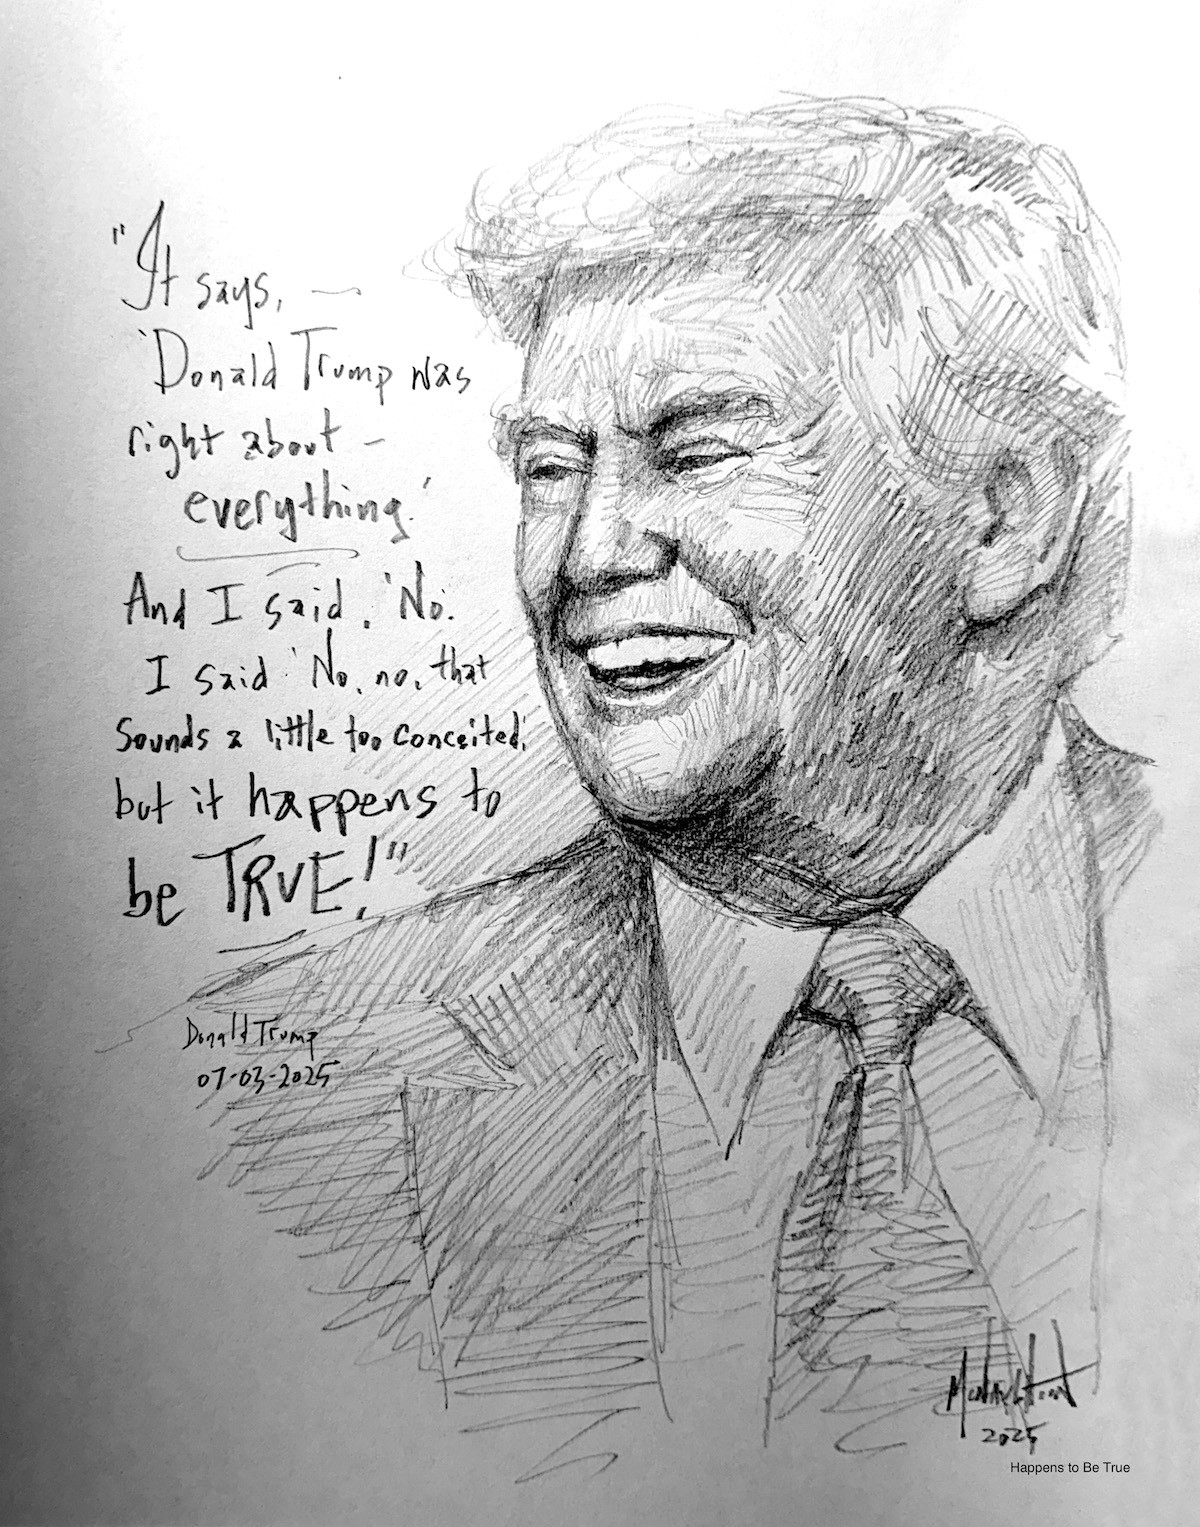 "It says,
'Donald Trump was
right about -
everything.'
And I said, 'No.
I said 'No, no, that
sounds a little too conceited,
but it happens to
be TRUE!"
Donald Trump
07-03-2025
2025
Happens to Be True